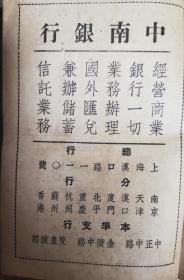 中南銀行
經營商業
銀行一切
業務辦理
國外匯兌
兼辦儲蓄
信託業務
總行
上海漢口路一一〇號
分行
南京 天津 漢口 廈門 北平 重慶 杭州 蘇州 香港
本埠支行
中正中路 金陵中路 梵皇渡路